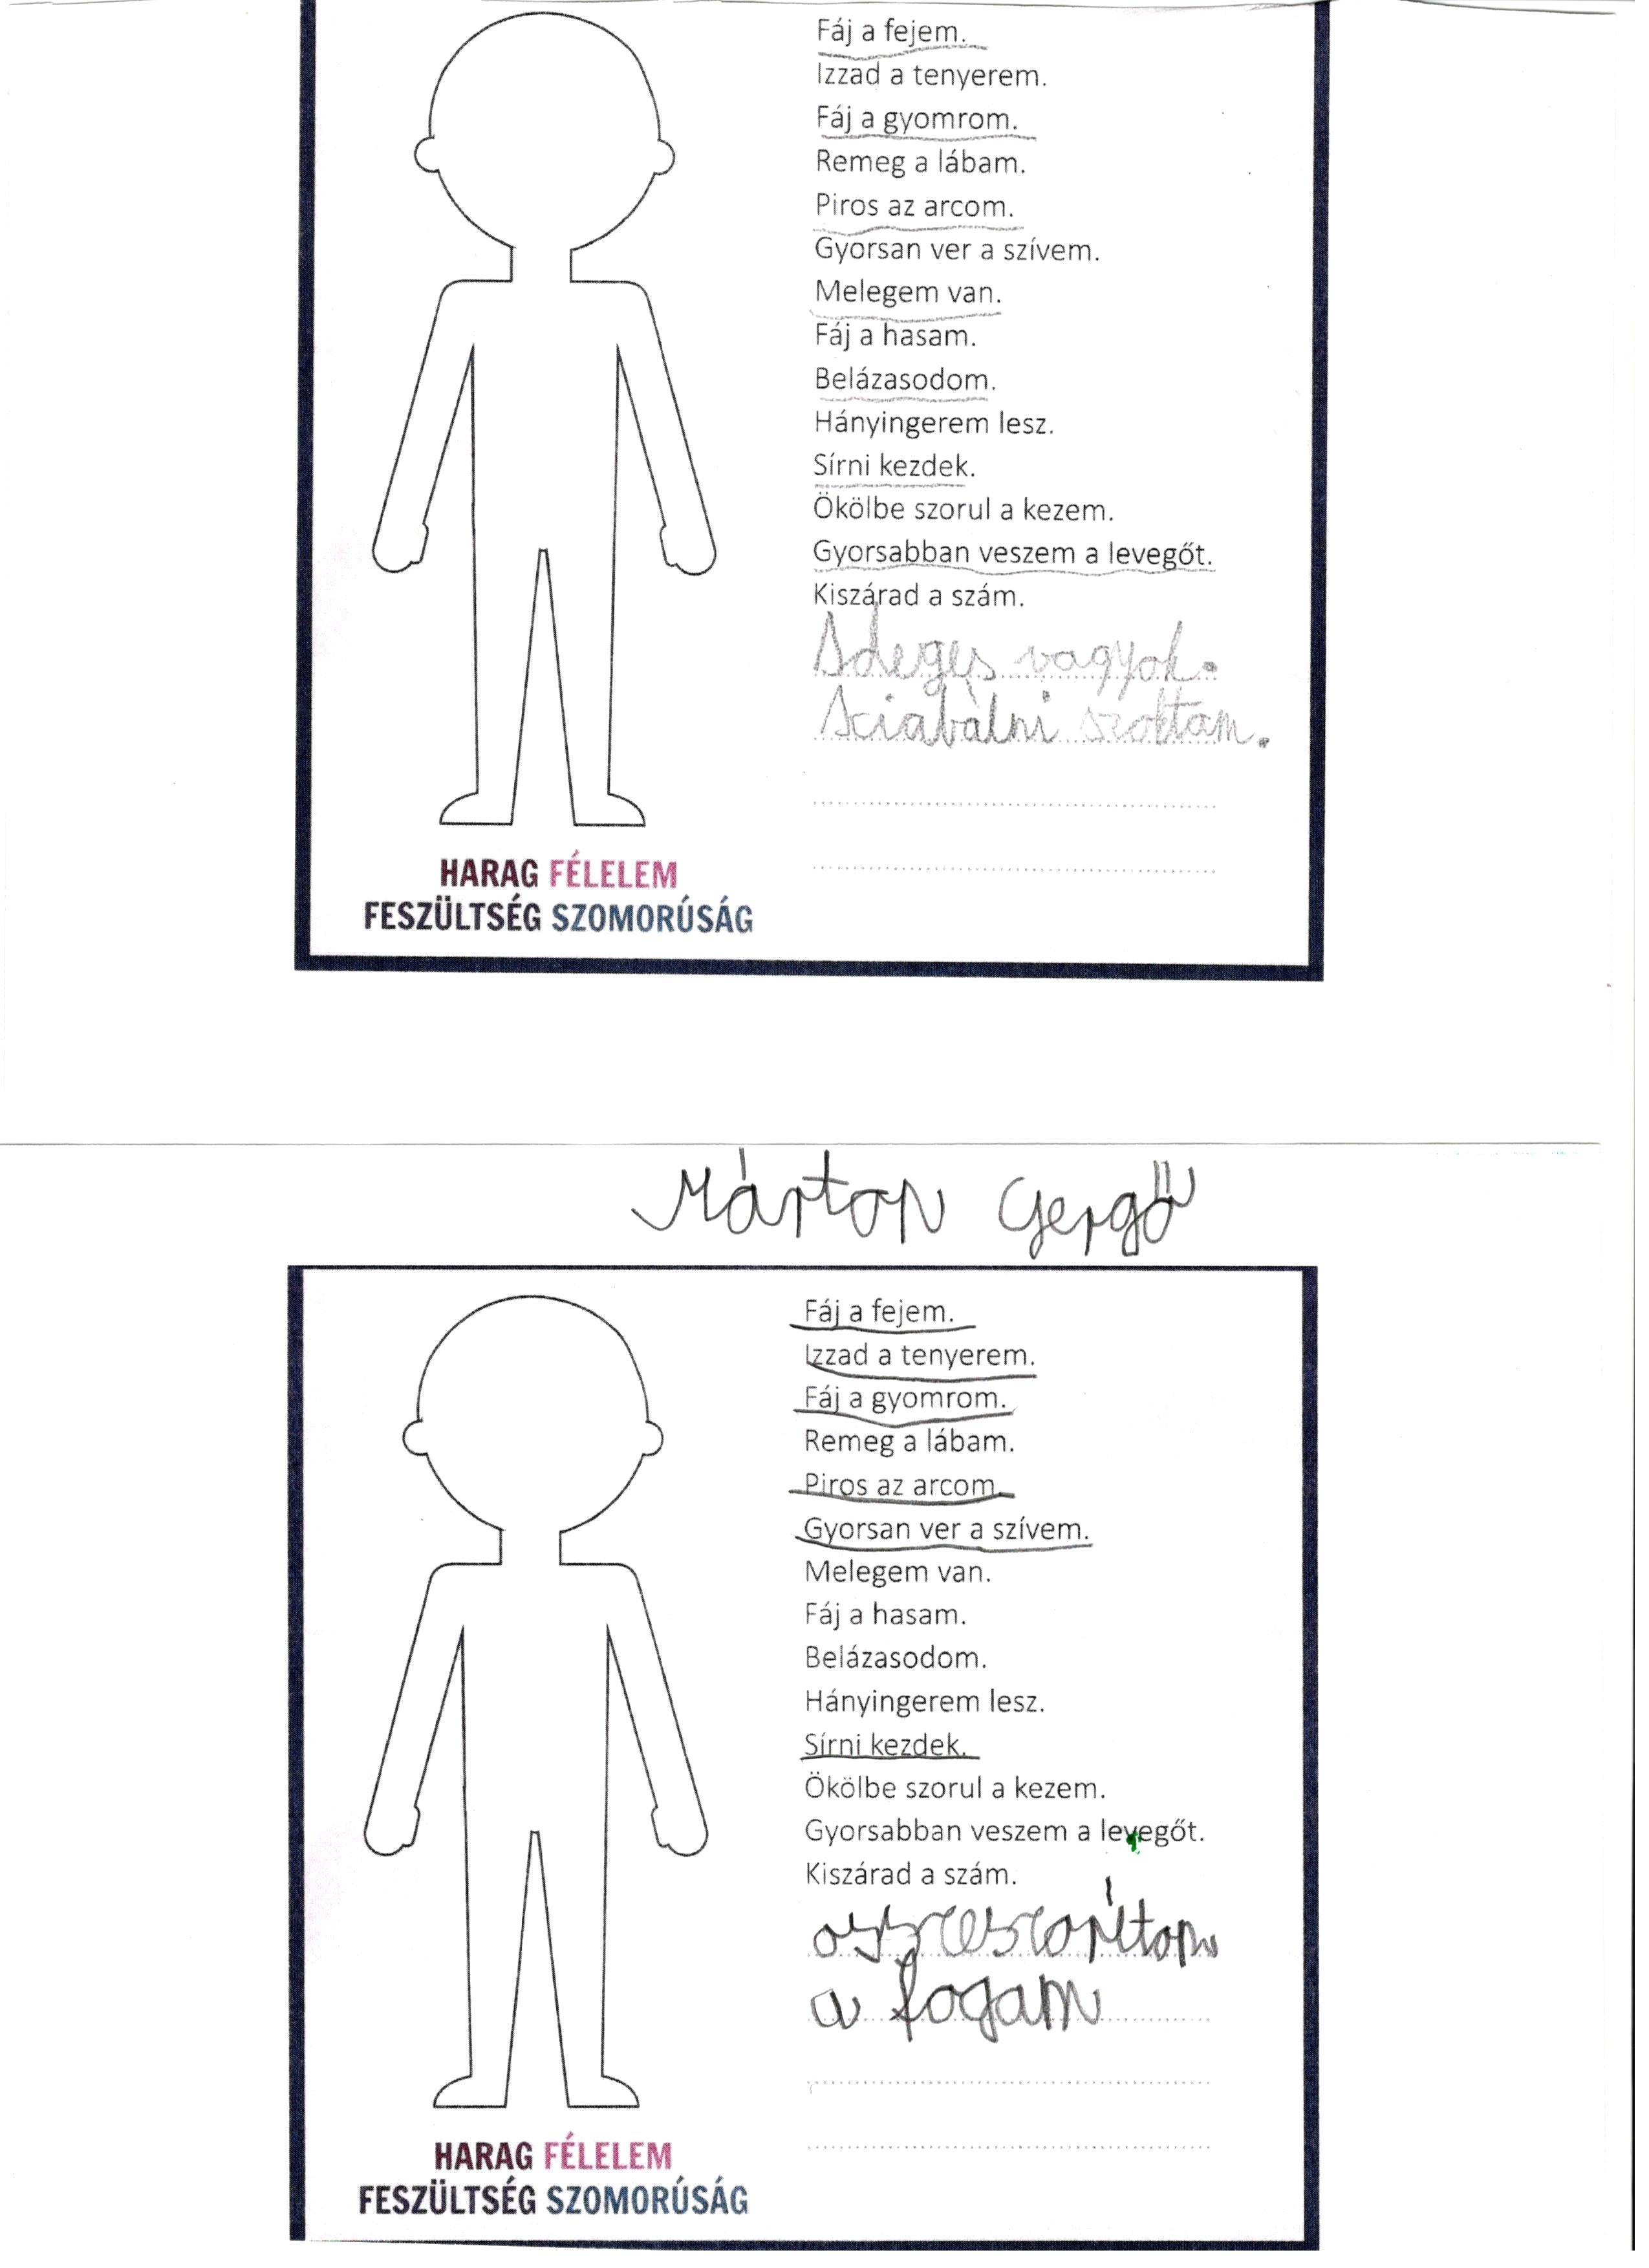 Fáj a fejem.
Izzad a tenyerem.
Fáj a gyomrom.
Remeg a lábam.
Piros az arcom.
Gyorsan ver a szívem.
Melegem van.
Fáj a hasam.
Belázasodom.
Hányingerem lesz.
Sírni kezdek.
Ökölbe szorul a kezem.
Gyorsabban veszem a levegőt.
Kiszárad a szám.
Ideges vagyok.
kiabálni szoktam.
HARAG FÉLELEM
FESZÜLTSÉG SZOMORÚSÁG
Márton Gergő
Fáj a fejem.
Izzad a tenyerem.
Fáj a gyomrom.
Remeg a lábam.
Piros az arcom.
Gyorsan ver a szívem.
Melegem van.
Fáj a hasam.
Belázasodom.
Hányingerem lesz.
Sírni kezdek.
Ökölbe szorul a kezem.
Gyorsabban veszem a levegőt.
Kiszárad a szám.
a fogam
HARAG FÉLELEM
FESZÜLTSÉG SZOMORÚSÁG